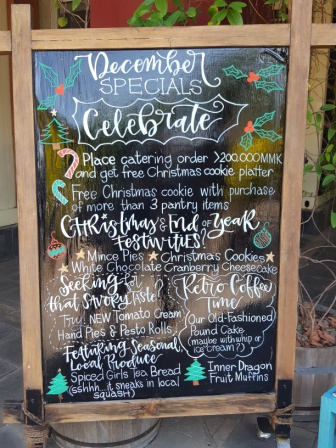 December
SPECIALS
Celebrate
Place catering order >200.000MMK
and get free Christmas cookie platter
Free Christmas cookie with purchase
of more than 3 pantry items
CHRISTMAS & END of YEAR
FESTIVITIES?
Mince Pies ★ Christmas Cookies
White Chocolate Cranberry Cheesecake
Seeking for
that SAVORY TASTE?
Try! NEW Tomato Cream
Hand Pies & Pesto Rolls
Retro Coffee
Time
(Our Old-Fashioned)
Pound Cake
(maybe with whip or
ice cream?)
Featuring Seasonal
Local Produce
Spiced Girls Tea Bread
(sshhh...it sneaks in local
SQUASH)
Inner Dragon
Fruit Muffins